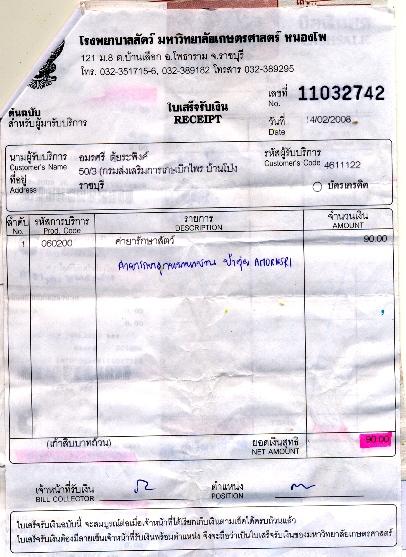 โรงพยาบาลสัตว์ มหาวิทยาลัยเกษตรศาสตร์ หนองโพ
121 ม.8 ต.บ้านเลือก อ.โพธาราม จ.ราชบุรี
โทร. 032-351715-6, 032-389182 โทรสาร 032-389295
เลขที่ 11032742
No.
ต้นฉบับ
สำหรับผู้มารับบริการ
ใบเสร็จรับเงิน
RECEIPT
วันที่ 14/02/2008
Date
นามผู้รับบริการ อมรศรี ตุ้ยระพิงค์
Customer's Name
รหัสผู้รับบริการ
Customer's Code 4611122
ที่อยู่ 50/3 (กรมส่งเสริมการเกษเบิกไพร บ้านโป่ง
Address ราชบุรี
บัตรเครดิต
ลำดับ รหัสการบริการ รายการ จำนวนเงิน
No. Prod. Code DESCRIPTION AMOUNT
1 060200 ค่ายารักษาสัตว์ 90.00
AMORNSRI
(เก้าสิบบาทถ้วน) ยอดเงินสุทธิ 90.00
NET AMOUNT
เจ้าหน้าที่รับเงิน ตำแหน่ง
BILL COLLECTOR POSITION
ใบเสร็จรับเงินฉบับนี้ จะสมบูรณ์ต่อเมื่อเจ้าหน้าที่ได้เรียกเก็บเงินตามเช็คได้ครบถ้วนแล้ว
ใบเสร็จรับเงินต้องมีลายเซ็นเจ้าหน้าที่รับเงินพร้อมตำแหน่ง จึงจะถือว่าเป็นใบเสร็จรับเงินของมหาวิทยาลัยเกษตรศาสตร์